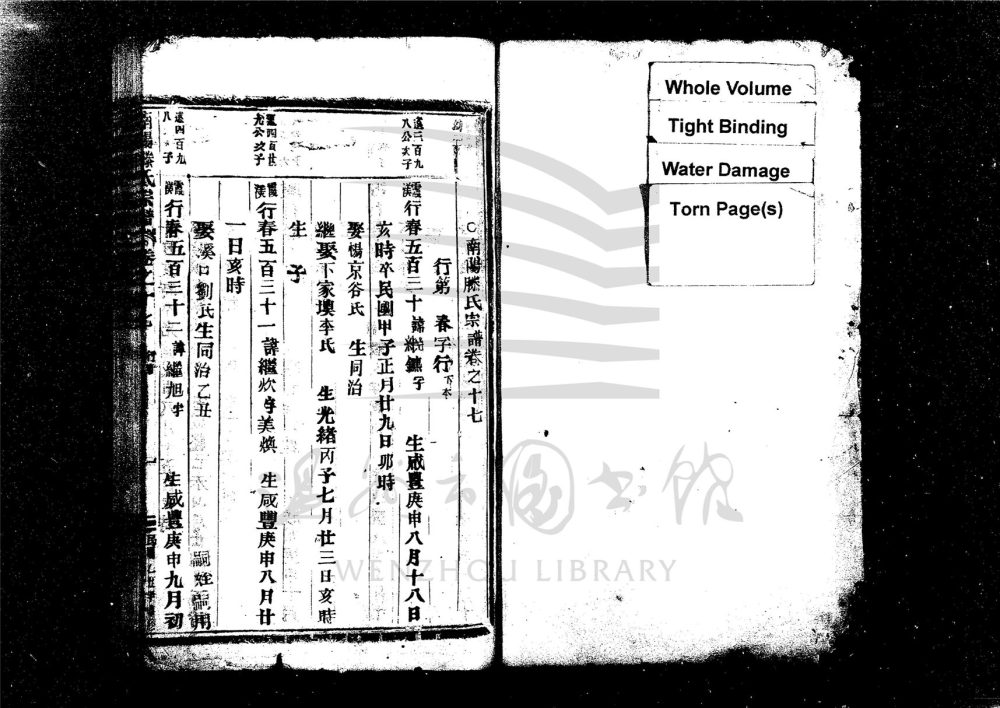 ○南陽滕氏宗譜卷之十七
行第 春字行下本
遠三百九
八公次子
霞漢行春五百三十 諱繼鑣字 生咸豐庚申八月十八日
亥時卒民國甲子正月廿九日卯時
娶楊京谷氏 生同治
繼娶下家墺李氏 生光緒丙子七月廿三日亥時
生 子
遠四百廿
九公次子
霞漢行春五百三十一諱繼炊字美煥 生咸豐庚申八月廿
一日亥時
娶溪口劉氏生同治乙丑 嗣姪嗣用
遠四百九
八 子
霞漢行春五百三十二諱繼旭字 生咸豐庚申九月初
南陽滕氏宗譜 卷之十七
Whole Volume
Tight Binding
Water Damage
Torn Page(s)
溫州市圖書館
WENZHOU LIBRARY